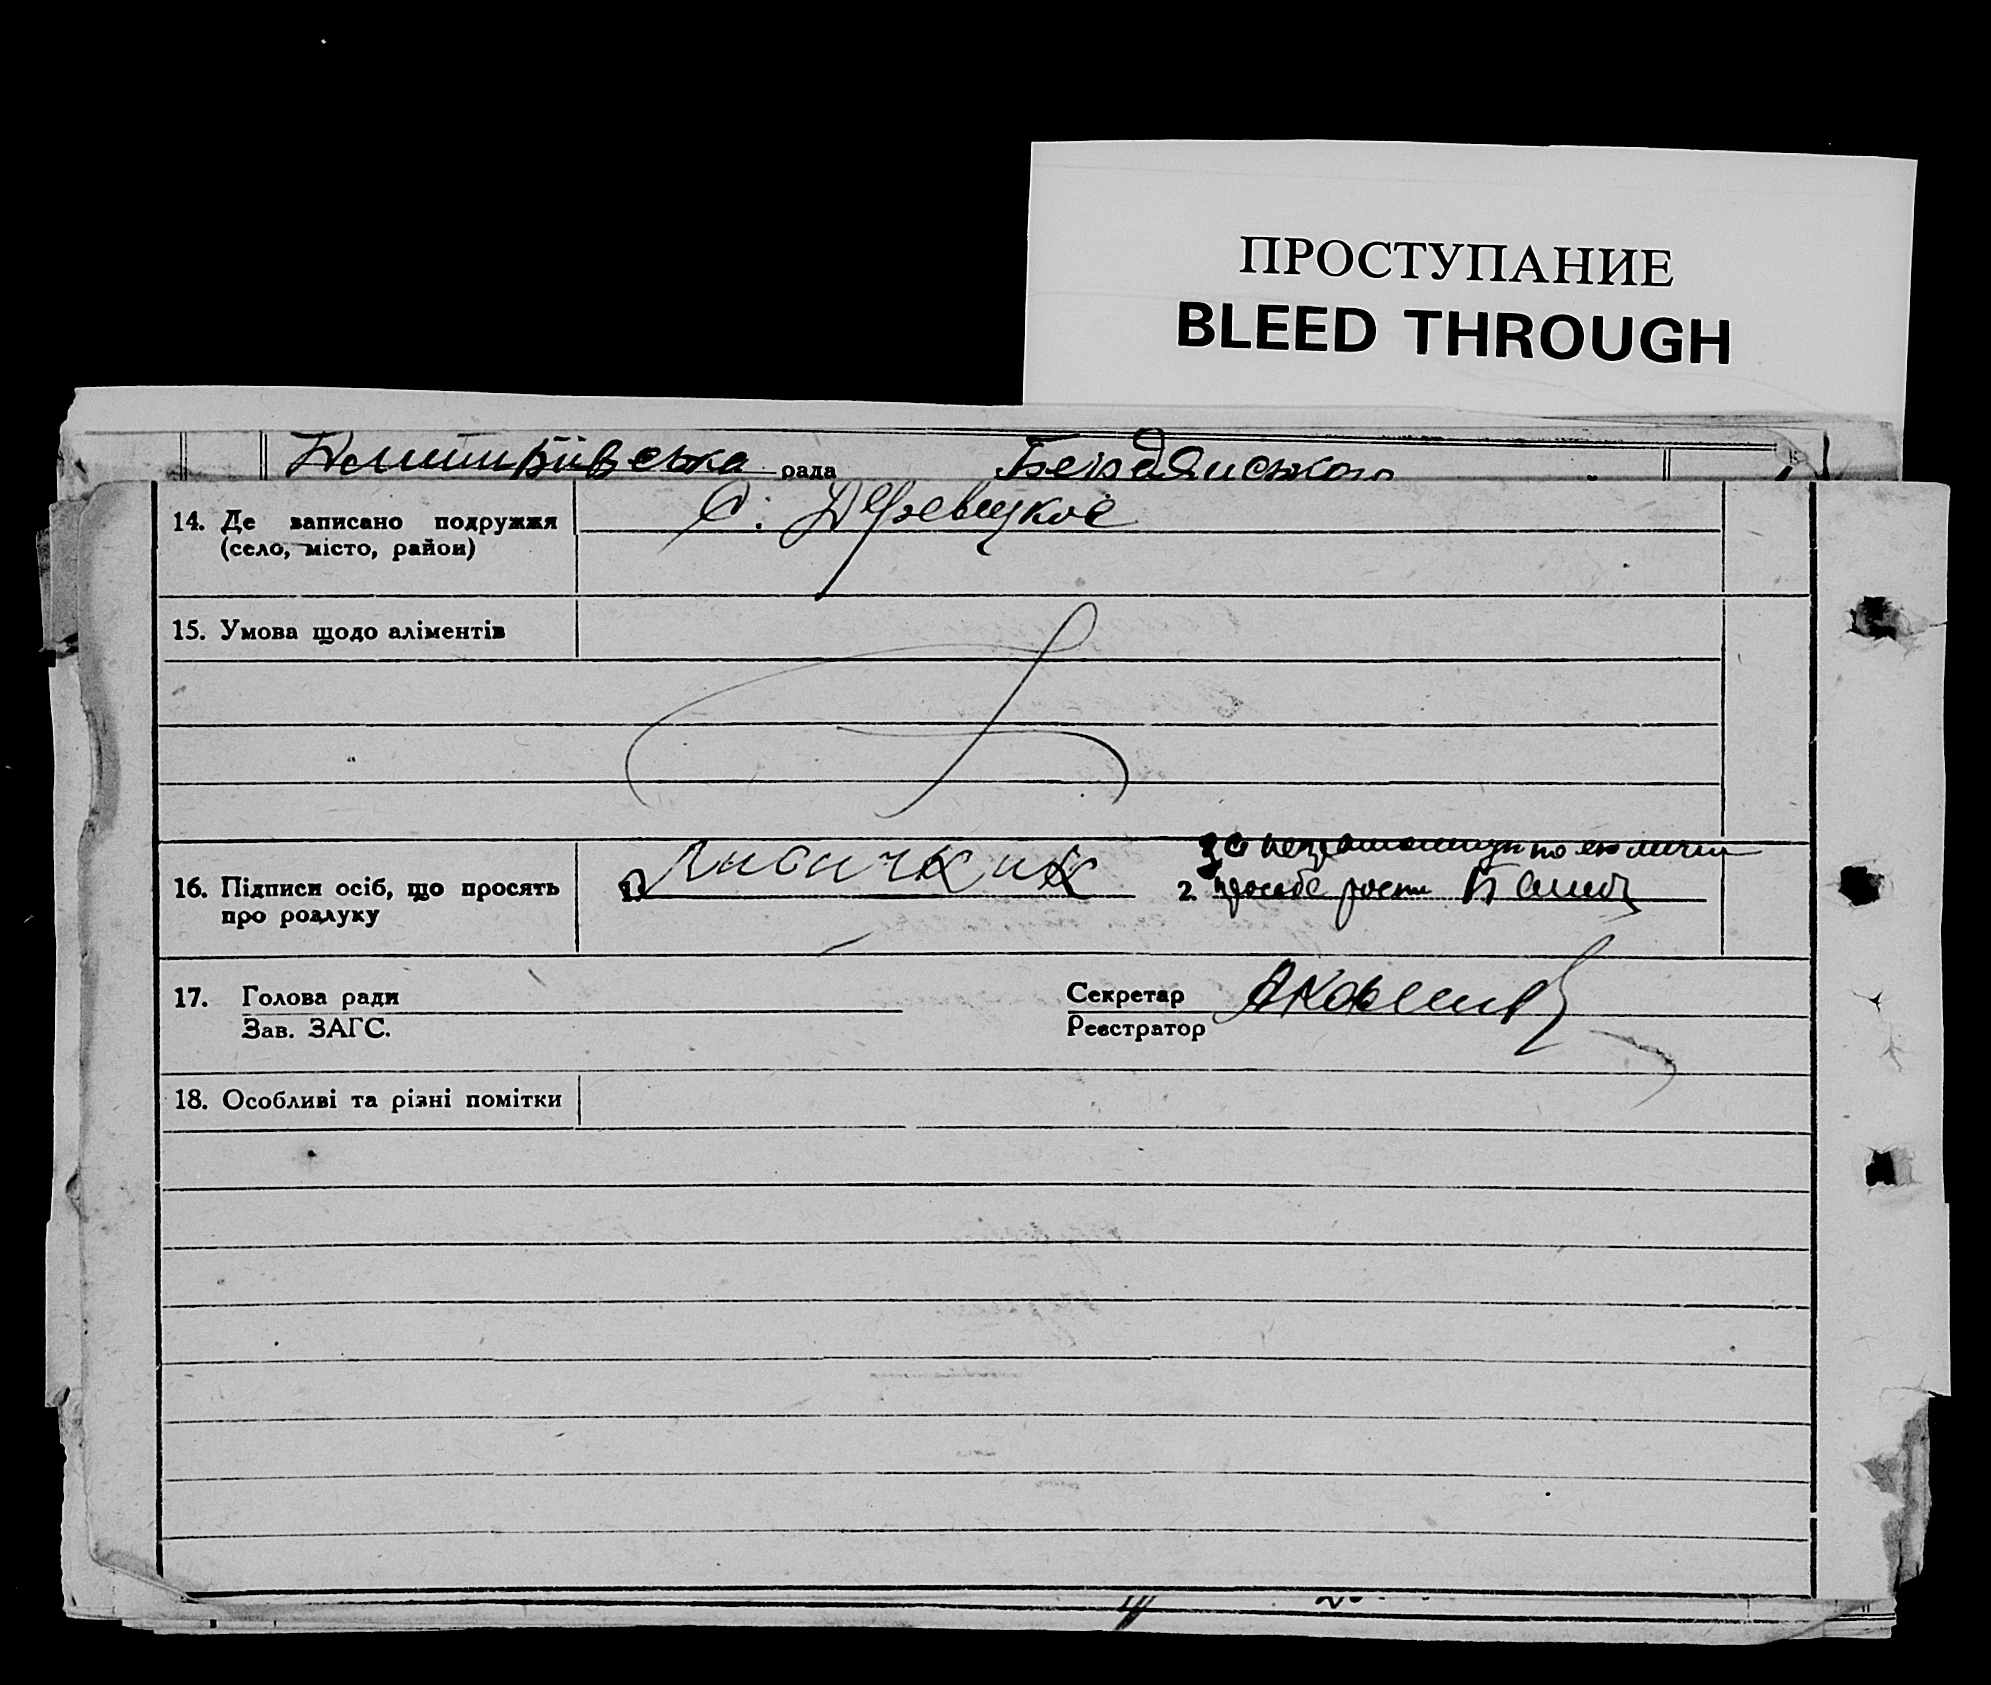 ПРОСТУПАНИЕ
BLEED THROUGH
Дмитрівська рада Бердянського
14. Де записано подружжя
(село, місто, район)
с.
15. Умова щодо аліментів
16. Підписи осіб, що просять
про розлуку
1.
2. за неграмотную по ее личной
просьбе росп.
17. Голова ради
Зав. ЗАГС.
Секретар
Реєстратор
18. Особливі та різні помітки